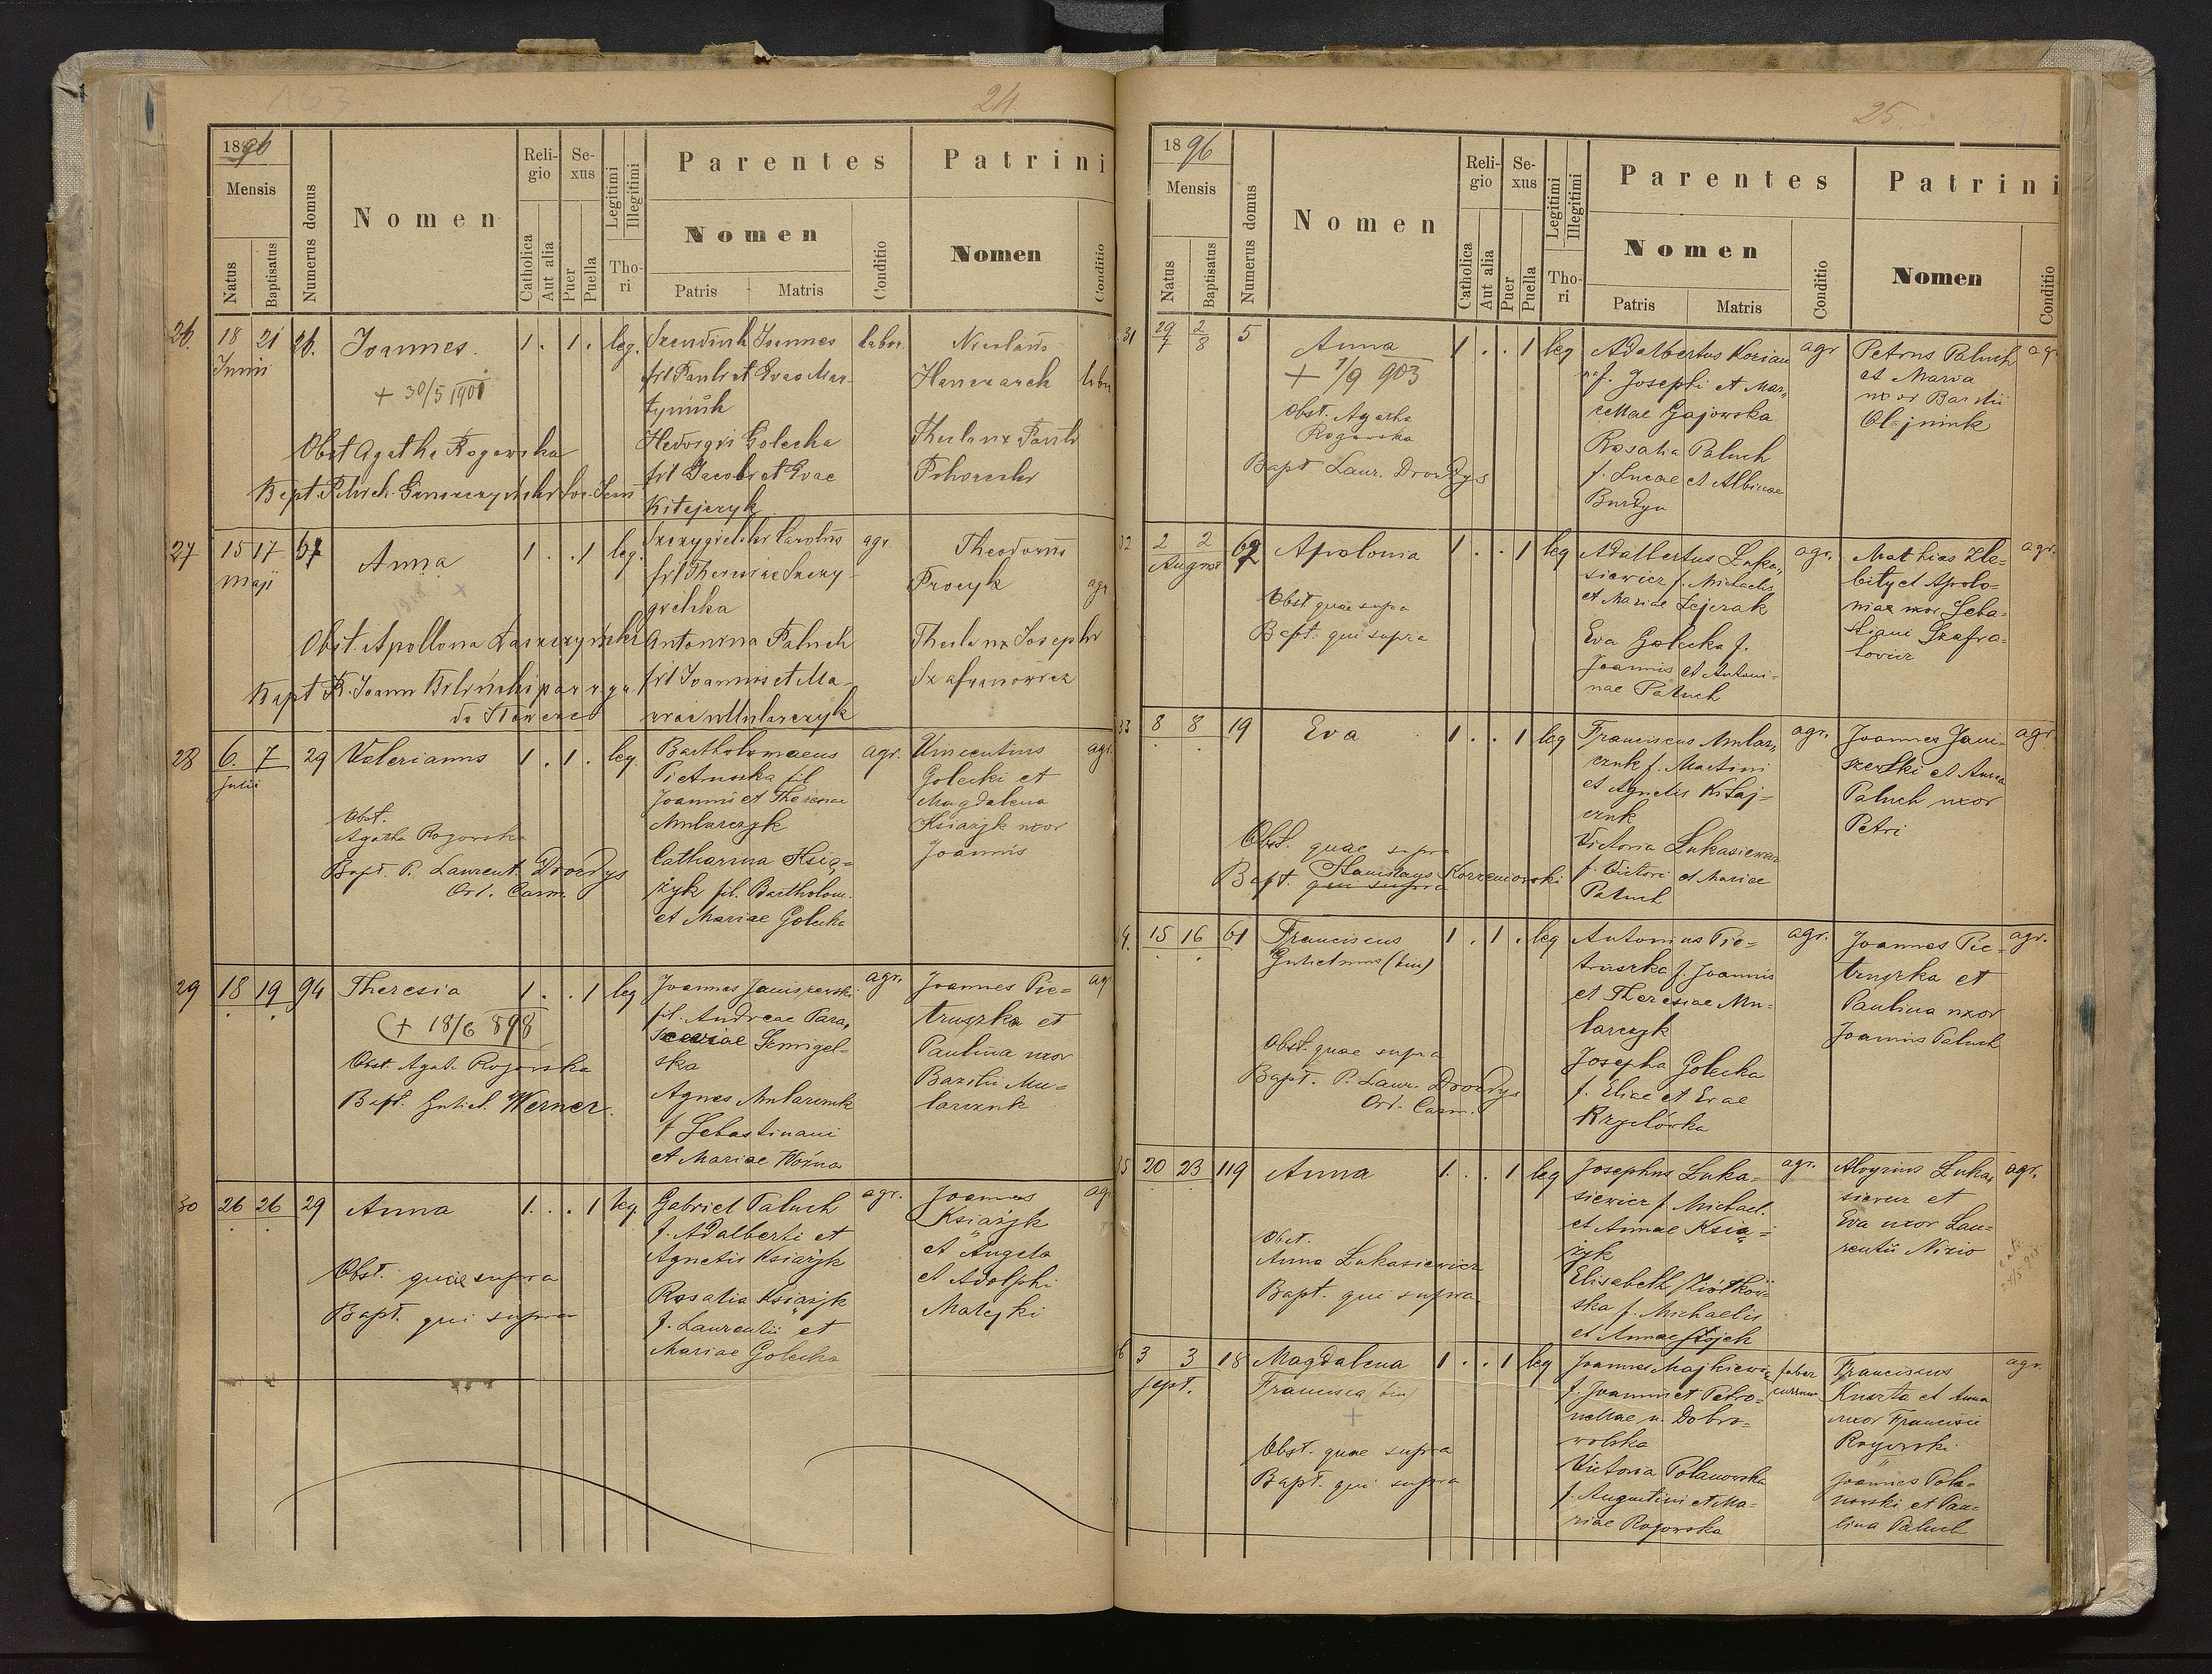 24
1896
Mensis
Natus
Baptisatus
Numerus domus
Nomen
Religio
Catholica
Aut alia
Sexus
Puer
Puella
Legitimi
Illegitimi
Thori
Parentes
Nomen
Patris
Matris
Conditio
Patrini
Nomen
Conditio
26. 18 21 26. Joannes. 1 . 1 . leg.
Junii
+ 30/5 1901
Obst Agatha Rogowska
Joannes
fil Pauli et Evae Mar-
tyniuk
Golecka
fil Jacobi et Evae
Kitajczyk
labor.
Nicolaus
27 15 17 Anna 1 . . 1 leg.
Maji
Obst. Apollona
Bapt
Carolus
fil Theresiae Szczy-
gielska
Antonina Paluch
fil Joannis et Ma-
riae Mularczyk
agr.
Theodorus
Procyk
agr
Josephi
Szafranowicz
28 6. 7 29 Valerianus 1 . 1 . leg.
Julii
Obst.
Agatha Rogowska
Bapt. P. Laurent. Drozdys
Ord. Carm.
Bartholomaeus
Pietruszka fil
Joannis et Theresiae
Mularczyk
Catharina Ksią=
żyk fil. Bartholom.
et Mariae Golecka
agr.
Vincentius
Golecki et
Magdalena
Książyk uxor
Joannis
agr.
29 18 19 94 Theresia 1 . . 1 leg
(+ 18/6 898
Obst. Agat. Rogowska
Bapt. Guliel. Werner.
Joannes Janiszewski
fil. Andreae Para,
Szmigel=
ska
Agnes Mularczuk
f Sebastiani
et Mariae Woźna
agr.
Joannes Pie=
truszka et
Paulina uxor
Bazilii Mu=
larczuk
agr
30 26 26 29 Anna 1. . . 1 leg.
Obst. quae supra
Bapt. qui supra
Gabriel Paluch
f. Adalberti et
Agnetis Książyk
Rosalia Książyk
f. Laurentii et
Mariae Golecka
agr.
Joannes
Książyk
et Angela
et Adolphi
Matejki
agr
25
1896
Mensis
Natus
Baptisatus
Numerus domus
Nomen
Religio
Catholica
Aut alia
Sexus
Puer
Puella
Legitimi
Illegitimi
Thori
Parentes
Nomen
Patris
Matris
Conditio
Patrini
Nomen
Conditio
31 29/7 2/8 5 Anna 1 . . 1 leg
+ 1/9 903
Obst. Agatha
Rogowska
Bapt Laur. Drozdys
Adalbertus
f. Josephi et Mar,
cellae Gajowska
Rosalia Paluch
f. Lucae et Albinae
Burdyn
agr
Petrus Paluch
et Maria
uxor Bazilii
Olejniuk
agr
32 2 2 Apolonia 1 . . 1 leg
August
Obst quae supra
Bapt. qui supra
Adalbertus Luka,
siewicz f. Michaelis
et Mariae
Eva Golecka f.
Joannis et Antoni-
nae Paluch
agr.
Mathias
et Apolo=
niae uxor Seba=
stiani Szafra=
agr.
33 8 8 19 Eva 1 . . 1 leg
Obst. quae supra
Bapt. Stanislaus Korzeniowski
qui supra
Franciscus Mular,
czuk f. Martini
et Agnetis Kitaj=
czuk
Victoria Lukasiewicz
f. Victori et Mariae
Paluch
agr.
Joannes Jani=
szewski et Anna
Paluch uxor
Petri
agr
34. 15 16 61 Franciscus 1 . 1 . leg
Gulielmus (bin)
Obst. quae supra
Bapt. P. Laur. Drozdys
Ord. Carm.
Antonius Pie=
truszka f. Joannis
et Theresiae Mu=
larczyk
Josepha Golecka
f. Eliae et Evae
agr.
Joannes Pie=
truszka et
Paulina uxor
Joannis Paluch
agr.
35 20 23 119 Anna 1. . . 1 leg
Obst.
Anna Lukasiewicz
Bapt. qui supra
Josephus Luka=
siewicz f. Michael.
et Annae Ksią=
żyk
Elisabeth Ziółkow=
ska f. Michaelis
et Annae
agr.
Aloysius Luka,
siewicz et
Eva uxor Lau=
rentii Nizio
agr.
36 3 3 18 Magdalena 1 . . 1 leg
Sept.
Francisca (bin)
+
Obst. quae supra
Bapt. qui supra
Joannes Majkiewicz
f. Joannis et Petro=
nellae n. Dobro=
wolska
Victoria Polanowska
f. Augustini et Ma=
riae Rogowska
faber
Franciscus
et Anna
uxor Francisci
Rogowski
Joannes Pola=
nowski et Pau=
lina Paluch
agr.